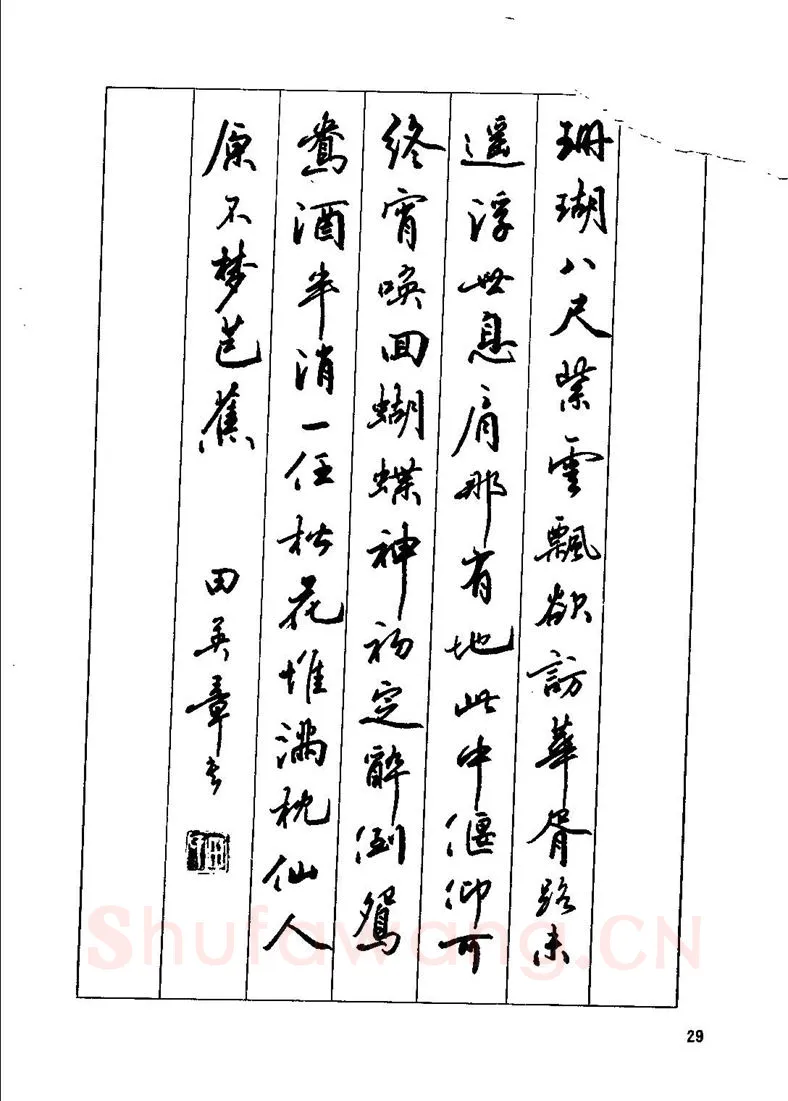 珊瑚八尺紫雲飄欲訪華胥路未
遥浮世息肩那有地此中偃仰可
终宵喚回蝴蝶神初定醉倒鴛
鴦酒半消一任松花堆满枕仙人
原不梦芭蕉
田英章书
Shufawang.CN
29